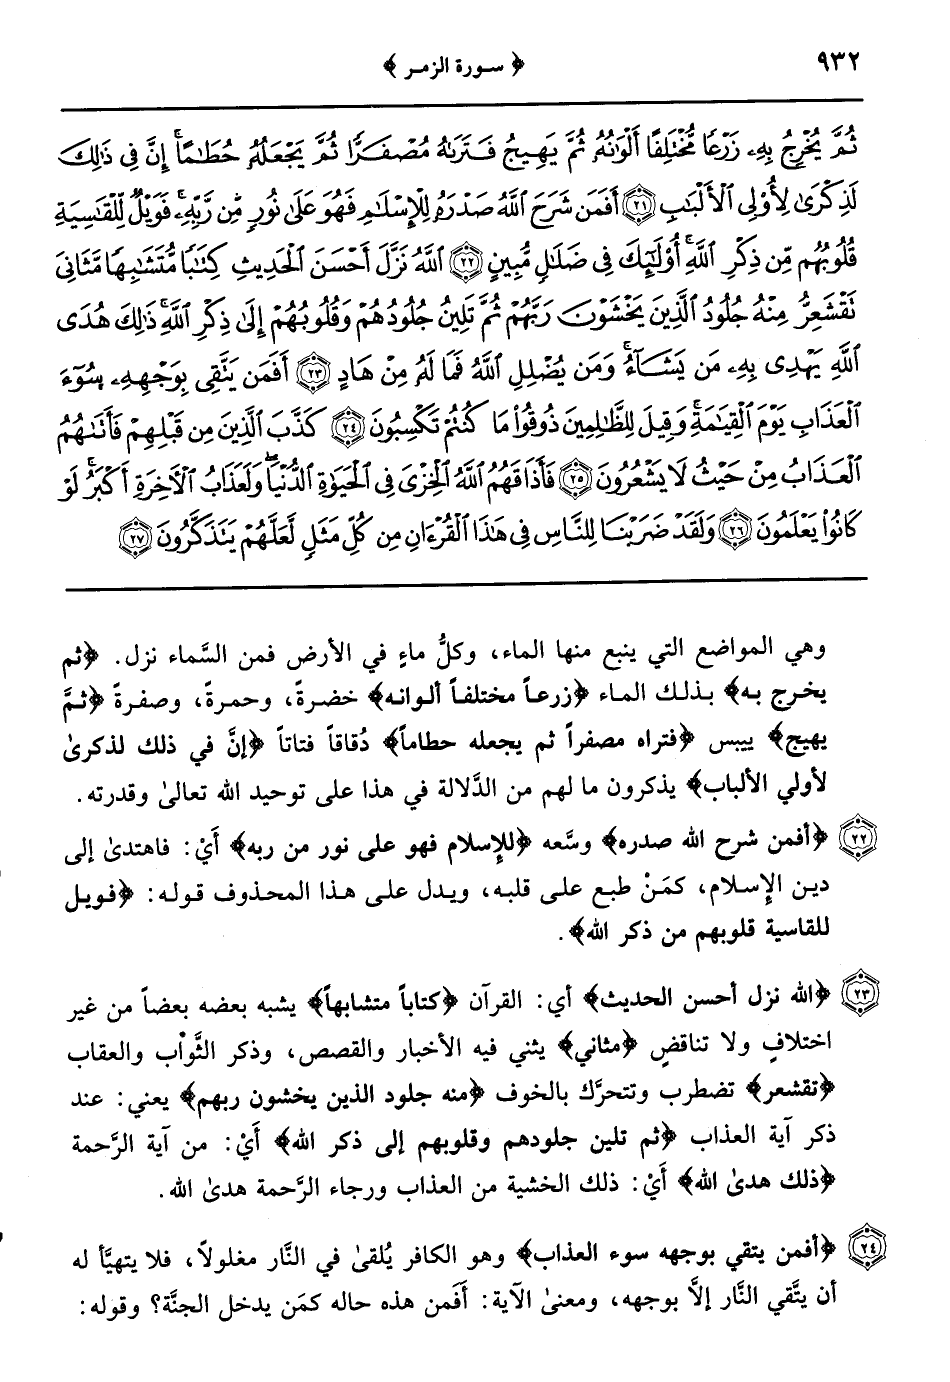 ٩٣٢
﴿ سورة الزمر ﴾
ثُمَّ يُخْرِجُ بِهِۦ زَرْعًا مُّخْتَلِفًا أَلْوَٰنُهُۥ ثُمَّ يَهِيجُ فَتَرَىٰهُ مُصْفَرًّا ثُمَّ يَجْعَلُهُۥ حُطَٰمًا ۚ إِنَّ فِى ذَٰلِكَ
لَذِكْرَىٰ لِأُو۟لِى ٱلْأَلْبَٰبِ ٢١ أَفَمَن شَرَحَ ٱللَّهُ صَدْرَهُۥ لِلْإِسْلَٰمِ فَهُوَ عَلَىٰ نُورٍ مِّن رَّبِّهِۦ ۚ فَوَيْلٌ لِّلْقَٰسِيَةِ
قُلُوبُهُم مِّن ذِكْرِ ٱللَّهِ ۚ أُو۟لَٰٓئِكَ فِى ضَلَٰلٍ مُّبِينٍ ٢٢ ٱللَّهُ نَزَّلَ أَحْسَنَ ٱلْحَدِيثِ كِتَٰبًا مُّتَشَٰبِهًا مَّثَانِىَ
تَقْشَعِرُّ مِنْهُ جُلُودُ ٱلَّذِينَ يَخْشَوْنَ رَبَّهُمْ ثُمَّ تَلِينُ جُلُودُهُمْ وَقُلُوبُهُمْ إِلَىٰ ذِكْرِ ٱللَّهِ ۚ ذَٰلِكَ هُدَى
ٱللَّهِ يَهْدِى بِهِۦ مَن يَشَآءُ ۚ وَمَن يُضْلِلِ ٱللَّهُ فَمَا لَهُۥ مِنْ هَادٍ ٢٣ أَفَمَن يَتَّقِى بِوَجْهِهِۦ سُوٓءَ
ٱلْعَذَابِ يَوْمَ ٱلْقِيَٰمَةِ ۚ وَقِيلَ لِلظَّٰلِمِينَ ذُوقُوا۟ مَا كُنتُمْ تَكْسِبُونَ ٢٤ كَذَّبَ ٱلَّذِينَ مِن قَبْلِهِمْ فَأَتَىٰهُمُ
ٱلْعَذَابُ مِنْ حَيْثُ لَا يَشْعُرُونَ ٢٥ فَأَذَاقَهُمُ ٱللَّهُ ٱلْخِزْىَ فِى ٱلْحَيَوٰةِ ٱلدُّنْيَا ۖ وَلَعَذَابُ ٱلْأَخِرَةِ أَكْبَرُ ۚ لَوْ
كَانُوا۟ يَعْلَمُونَ ٢٦ وَلَقَدْ ضَرَبْنَا لِلنَّاسِ فِى هَٰذَا ٱلْقُرْءَانِ مِن كُلِّ مَثَلٍ لَّعَلَّهُمْ يَتَذَكَّرُونَ ٢٧
وهي المواضع التي ينبع منها الماء، وكلُّ ماءٍ في الأرض فمن السَّماء نزل. ﴿ثم
يخرج به﴾ بذلك الماء ﴿زرعاً مختلفاً ألوانه﴾ خضرةً، وحمرةً، وصفرةً ﴿ثمَّ
يهيج﴾ ييبس ﴿فتراه مصفراً ثم يجعله حطاماً﴾ دُقاقاً فتاتاً ﴿إنَّ في ذلك لذكرىٰ
لأولي الألباب﴾ يذكرون ما لهم من الدَّلالة في هذا على توحيد الله تعالىٰ وقدرته.
٢٢ ﴿أفمن شرح الله صدره﴾ وسَّعه ﴿للإسلام فهو على نور من ربه﴾ أَيْ: فاهتدىٰ إلى
دين الإسلام، كمَنْ طبع على قلبه، ويدل على هذا المحذوف قوله: ﴿فويل
للقاسية قلوبهم من ذكر الله﴾.
٢٣ ﴿الله نزل أحسن الحديث﴾ أي: القرآن ﴿كتاباً متشابهاً﴾ يشبه بعضه بعضاً من غير
اختلافٍ ولا تناقضٍ ﴿مثاني﴾ يثني فيه الأخبار والقصص، وذكر الثَّواب والعقاب
﴿تقشعر﴾ تضطرب وتتحرَّك بالخوف ﴿منه جلود الذين يخشون ربهم﴾ يعني: عند
ذكر آية العذاب ﴿ثم تلين جلودهم وقلوبهم إلى ذكر الله﴾ أَيْ: من آية الرَّحمة
﴿ذلك هدىٰ الله﴾ أَيْ: ذلك الخشية من العذاب ورجاء الرَّحمة هدىٰ الله.
٢٤ ﴿أفمن يتقي بوجهه سوء العذاب﴾ وهو الكافر يُلقىٰ في النَّار مغلولاً، فلا يتهيَّأ له
أن يتَّقي النَّار إلاَّ بوجهه، ومعنىٰ الآية: أَفَمن هذه حاله كمَن يدخل الجنَّة؟ وقوله: